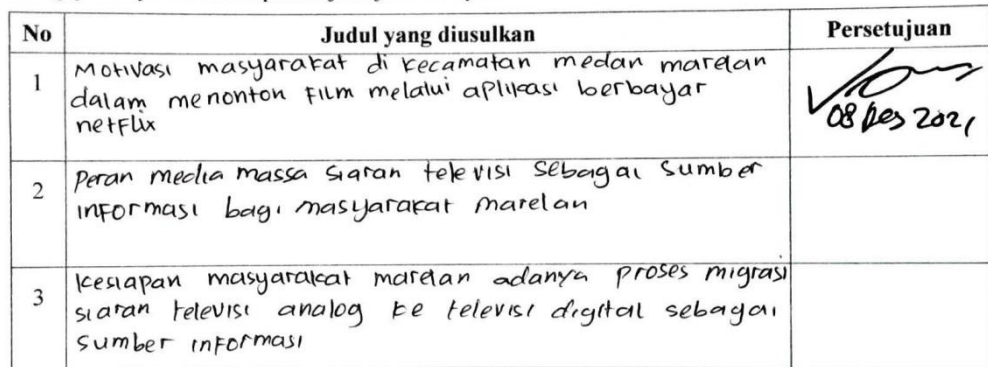 No Judul yang diusulkan Persetujuan
1 Motivasi masyarakat di kecamatan medan marelan
dalam menonton film melalui aplikasi berbayar
netflix
08 Des 2021
2 Peran media massa siaran televisi sebagai sumber
informasi bagi masyarakat marelan
3 kesiapan masyarakat marelan adanya proses migrasi
siaran televisi analog ke televisi digital sebagai
sumber informasi